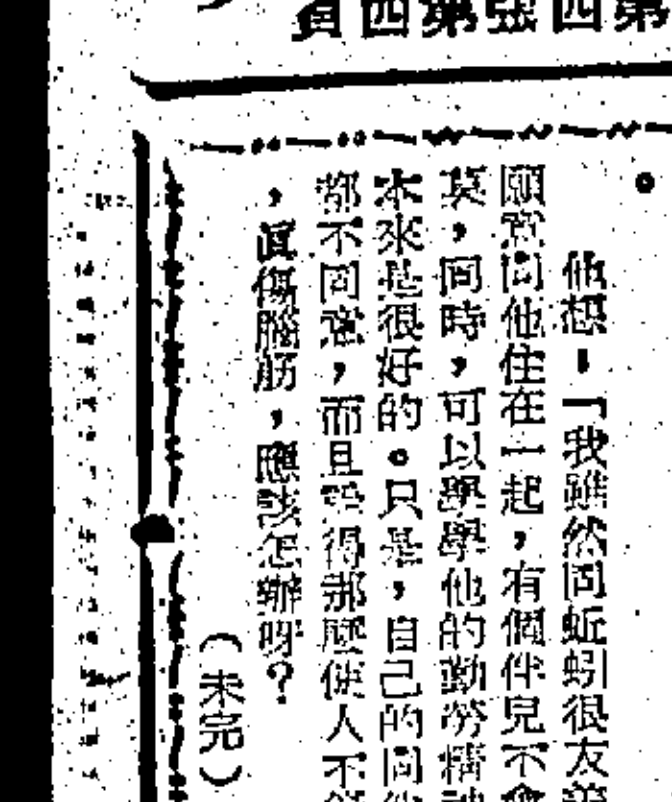 第四張第四頁
他想，「我雖然同蚯蚓很友善
願意同他住在一起，有個伴兒不會
莫，同時，可以學學他的勤勞精神
本來是很好的。只是，自己的同伴
都不同意，而且 得那麼使人不
，眞傷腦筋，應該怎辦呀？
（未完）